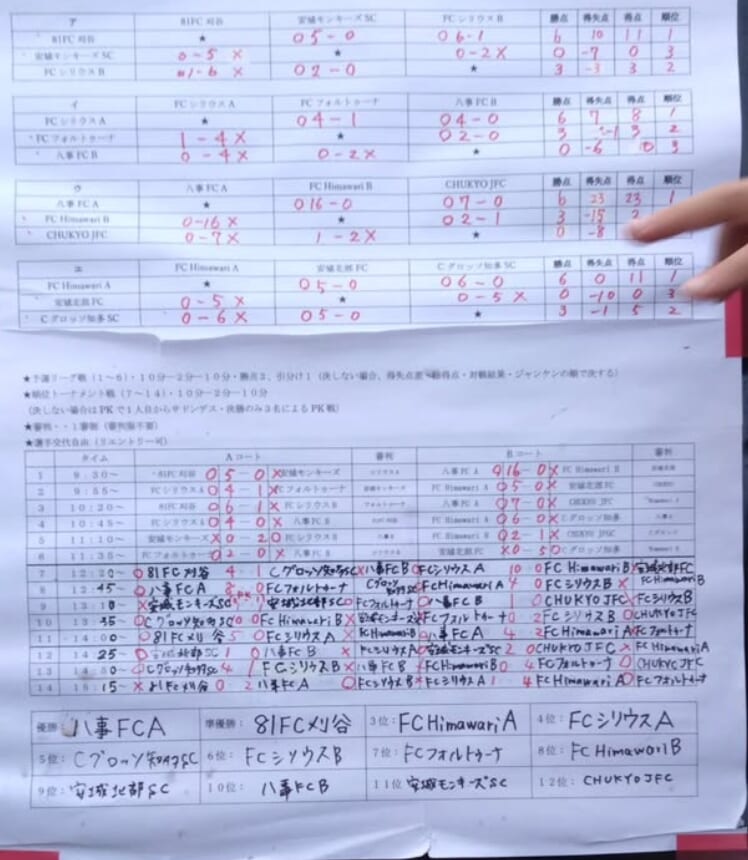 ア 81FC刈谷 安城モンキーズSC FCシリウスB 勝点 得失点 得点 順位
81FC刈谷 ★ ○5-0 ○6-1 6 10 11 1
安城モンキーズSC 0-5× ★ 0-2× 0 -7 0 3
FCシリウスB 1-6× ○2-0 ★ 3 -3 3 2
イ FCシリウスA FCフォルトゥーナ 八事FC B 勝点 得失点 得点 順位
FCシリウスA ★ ○4-1 ○4-0 6 7 8 1
FCフォルトゥーナ 1-4× ★ ○2-0 3 -1 3 2
八事FC B 0-4× 0-2× ★ 0 -6 0 3
ウ 八事FC A FC Himawari B CHUKYO JFC 勝点 得失点 得点 順位
八事FC A ★ ○16-0 ○7-0 6 23 23 1
FC Himawari B 0-16× ★ ○2-1 3 -15 2
CHUKYO JFC 0-7× 1-2× ★ 0 -8
エ FC Himawari A 安城北部FC Cグロッソ知多SC 勝点 得失点 得点 順位
FC Himawari A ★ ○5-0 ○6-0 6 0 11 1
安城北部FC 0-5× ★ 0-5× 0 -10 0 3
Cグロッソ知多SC 0-6× ○5-0 ★ 3 -1 5 2
★予選リーグ戦(1~6)・10分-2分-10分・勝点3、引分け1(決しない場合、得失点差・総得点・対戦結果・ジャンケンの順で決する)
★順位トーナメント戦(7~14)・10分-2分-10分
(決しない場合はPKで1人目からサドンデス・決勝のみ3名によるPK戦)
★審判・・1審制(審判服不要)
★選手交代自由(リエントリー可)
タイム Aコート 審判 Bコート 審判
1 9:30~ 81FC刈谷 ○5-0× 安城モンキーズ 八事FC A ○16-0× FC Himawari B
2 9:55~ FCシリウスA ○4-1× FCフォルトゥーナ FC Himawari A ○5-0× 安城北部FC
3 10:20~ 81FC刈谷 ○6-1× FCシリウスB 八事FC A ○7-0× CHUKYO JFC
4 10:45~ FCシリウスA ○4-0× 八事FC B FC Himawari A ○6-0× Cグロッソ知多
5 11:10~ 安城モンキーズ ×0-2○ FCシリウスB FC Himawari B ○2-1× CHUKYO JFC
6 11:35~ FCフォルトゥーナ ○2-0× 八事FC B 安城北部FC ×0-5○ Cグロッソ知多
7 12:20~ ○81FC刈谷 4-1 Cグロッソ知多SC× 八事FCB ○FCシリウスA 10 0 FC HimawariB× 安城北部FC
8 12:45~ ○八事FCA 8-0 FCフォルトゥーナ Cグロッソ知多SC ○FCHimawariA 4 0 FCシリウスB× FCHimawariB
9 13:10~ ×安城モンキーズSC PK 安城北部SC○ FCフォルトゥーナ ○八事FCB 1 0 CHUKYOJFC× FCシリウスB
10 13:35~ ○CグロッソSC 0 FC HimawariB× 安城モンキーズSC ×FCフォルトゥーナ 0 2 FCシリウスB○ CHUKYOJFC
11 14:00~ ○81FC刈谷 5 0 FCシリウスA× FCHimawariB ○八事FCA 4 2 FCHimawariA× FCフォルトゥーナ
12 14:25~ ○安城北部SC 1 0 八事FCB× FCシリウスA ○安城モンキーズSC 2 0 CHUKYOJFC× FCHimawariA
13 14:50~ ○Cグロッソ知多SC 4 1 FCシリウスB× 八事FCB ×FCHimawariB 0 4 FCフォルトゥーナ○ CHUKYOJFC
14 15:15~ ×81FC刈谷 0-2 八事FCA○ FCシリウスB ×FCシリウスA 1-4 FCHimawariA○ FCフォルトゥーナ
優勝: 八事FCA 準優勝: 81FC刈谷 3位: FCHimawariA 4位: FCシリウスA
5位: Cグロッソ知多SC 6位: FCシリウスB 7位: FCフォルトゥーナ 8位: FC HimawariB
9位: 安城北部SC 10位: 八事FCB 11位 安城モンキーズSC 12位: CHUKYOJFC